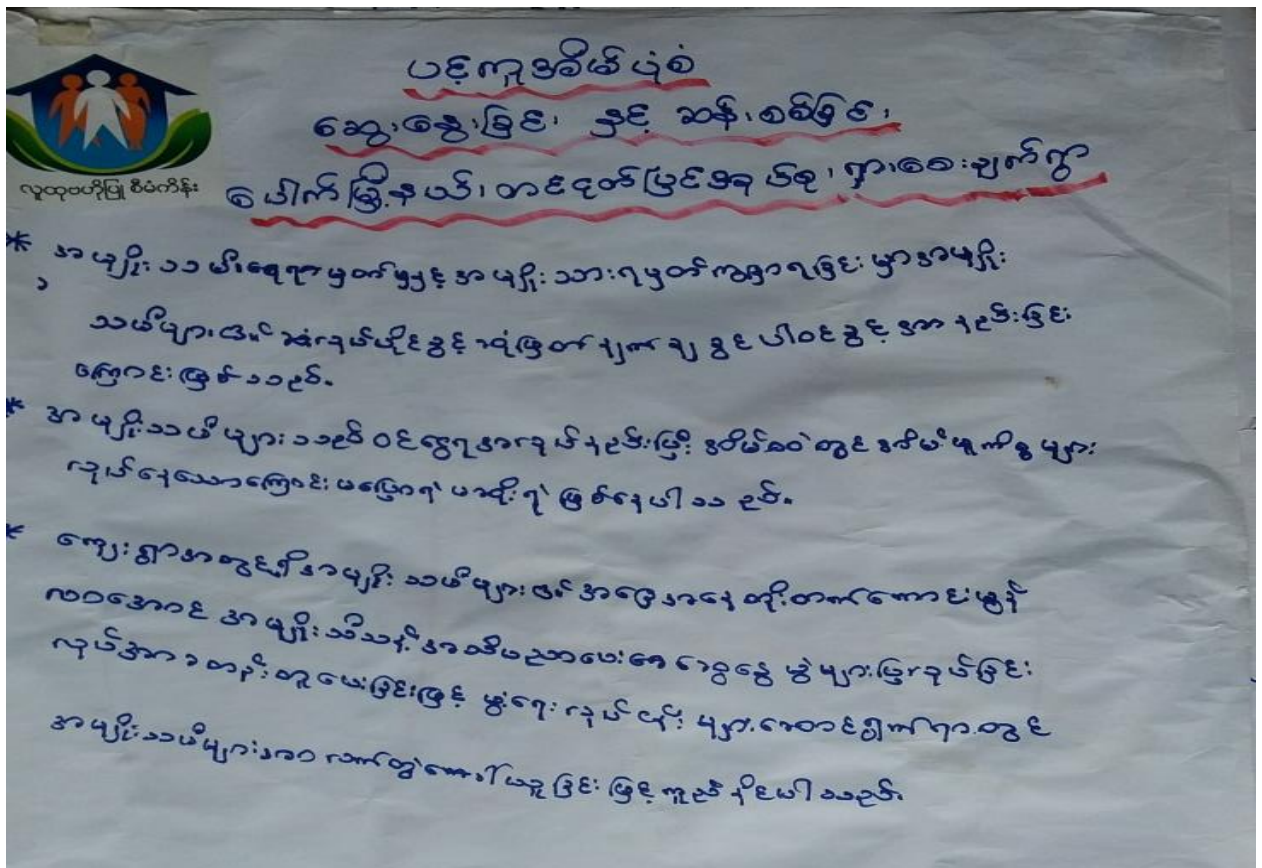 ပင့်ကူအိမ်ပုံစံ
ဆွေးနွေးခြင်း နှင့် ဆန်းစစ်ခြင်း
လူထုဗဟိုပြု စီမံကိန်း
ပေါက်မြို့နယ်၊ တင်ငုတ်ပြင်အုပ်စု၊ ရွာစေးချက်ရွာ
* အမျိုးသမီးရေရာမှတ်မှုနှင့် အမျိုးသားရမှတ်ကွာရခြင်းမှာအမျိုး
သမီးများ၏ ဆုံးဖြတ်ချက်ချခွင့် ပါဝင်ခွင့် အားနည်းခြင်း
ကြောင်းဖြစ်သည်။
* အမျိုးသမီများသည် ဝင်ငွေရအလုပ်နည်းပြီး အိမ်ထဲတွင် အိမ်မှုကိစ္စများ
လုပ်နေသောကြောင်း မပြောရဲ မဆိုးရဲ ဖြစ်နေပါသည်။
* ကျေးရွာအတွင်းရှိအမျိုးသမီများ၏ အခြေအနေတိုးတက်ကောင်းမွန်
လာအောင် အမျိုးသီသန့်အသိပညာပေး ဆွေးနွေးပွဲများပြုလုပ်ခြင်း
လုပ်အားခတန်းတူပေးခြင်းဖြင့် ဖွံ့ရေးလုပ်ငန်းများဆောင်ရွက်ရာတွင်
အမျိုးသမီများအား လက်တွဲခေါ်ယူခြင်းဖြင့်ကူညီနိုင်ပါသည်။